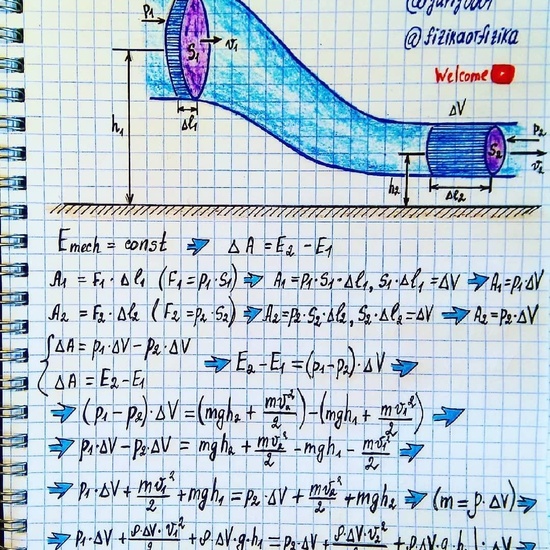 @fizikaotfizika
Welcome
P₁
S₁
v₁
Δl₁
h₁
ΔV
P₂
S₂
v₂
h₂
Δl₂
Emech = const ⇒ ΔA = E₂ − E₁
A₁ = F₁ · Δl₁ (F₁ = p₁ · S₁) ⇒ A₁ = p₁ · S₁ · Δl₁, S₁ · Δl₁ = ΔV ⇒ A₁ = p₁ · ΔV
A₂ = F₂ · Δl₂ (F₂ = p₂ · S₂) ⇒ A₂ = p₂ · S₂ · Δl₂, S₂ · Δl₂ = ΔV ⇒ A₂ = p₂ · ΔV
{ ΔA = p₁ · ΔV − p₂ · ΔV
ΔA = E₂ − E₁ ⇒ E₂ − E₁ = (p₁ − p₂) · ΔV ⇒
⇒ (p₁ − p₂) · ΔV = (mgh₂ + mv₂²/2) − (mgh₁ + mv₁²/2) ⇒
⇒ p₁ · ΔV − p₂ · ΔV = mgh₂ + mv₂²/2 − mgh₁ − mv₁²/2 ⇒
⇒ p₁ · ΔV + mv₁²/2 + mgh₁ = p₂ · ΔV + mv₂²/2 + mgh₂ ⇒ (m = ρ · ΔV) ⇒
⇒ p₁ · ΔV + ρ · ΔV · v₁²/2 + ρ · ΔV · g · h₁ = p₂ · ΔV + ρ · ΔV · v₂²/2 + ρ · ΔV · g · h